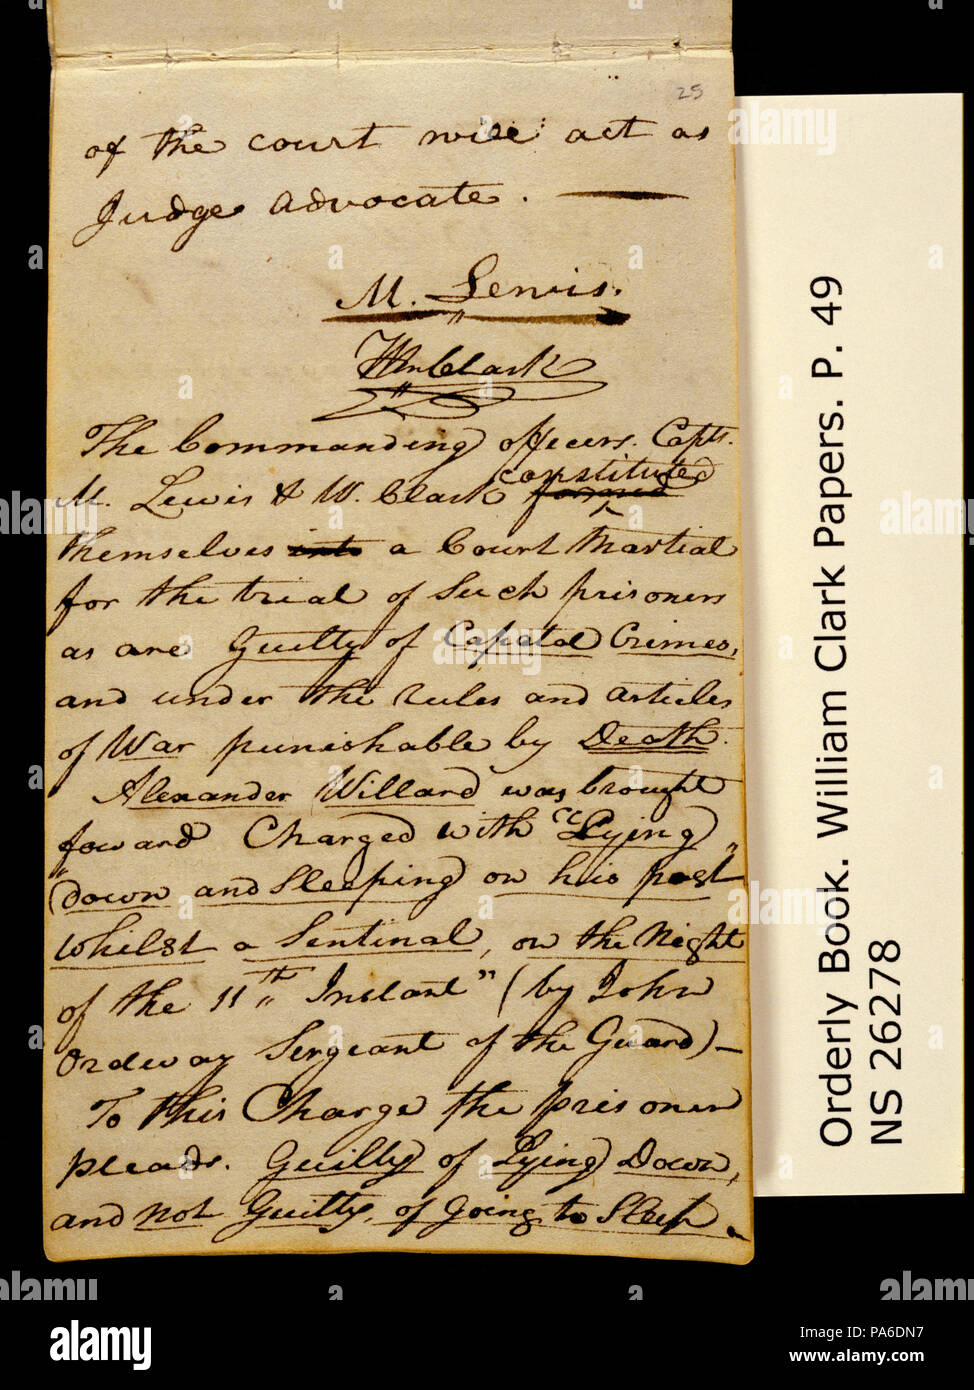 25
of the court will act as
Judge advocate.
M. Lewis.
Wm Clark
The Commanding officers. Capts.
M. Lewis & W. Clark constituted
themselves into a Court Martial
for the trial of Such prisoners
as are Guilty of Capatal Crimes,
and under the rules and articles
of War punishable by Death.
Alexander Willard was brought
foward Charged with "Lying
down and Sleeping on his post"
whilst a Sentinal, on the Night
of the 11th Instant" (by John
Ordway Sergeant of the Guard)—
To this Charge the prisoner
pleads. Guilty of Lying Down,
and not Guilty, of Going to Sleep.
Orderly Book. William Clark Papers. P. 49
NS 26278
alamy
Image ID: PA6DN7
www.alamy.com